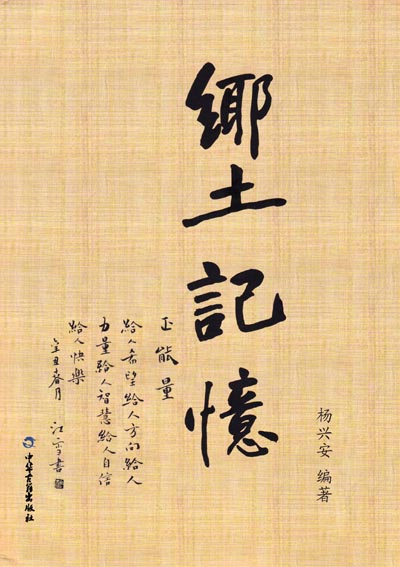 鄉土記憶
正能量
給人希望給人方向給人
力量給人智慧給人自信
給人快樂
辛丑春月 江雪書
杨兴安 编著
中华古籍出版社